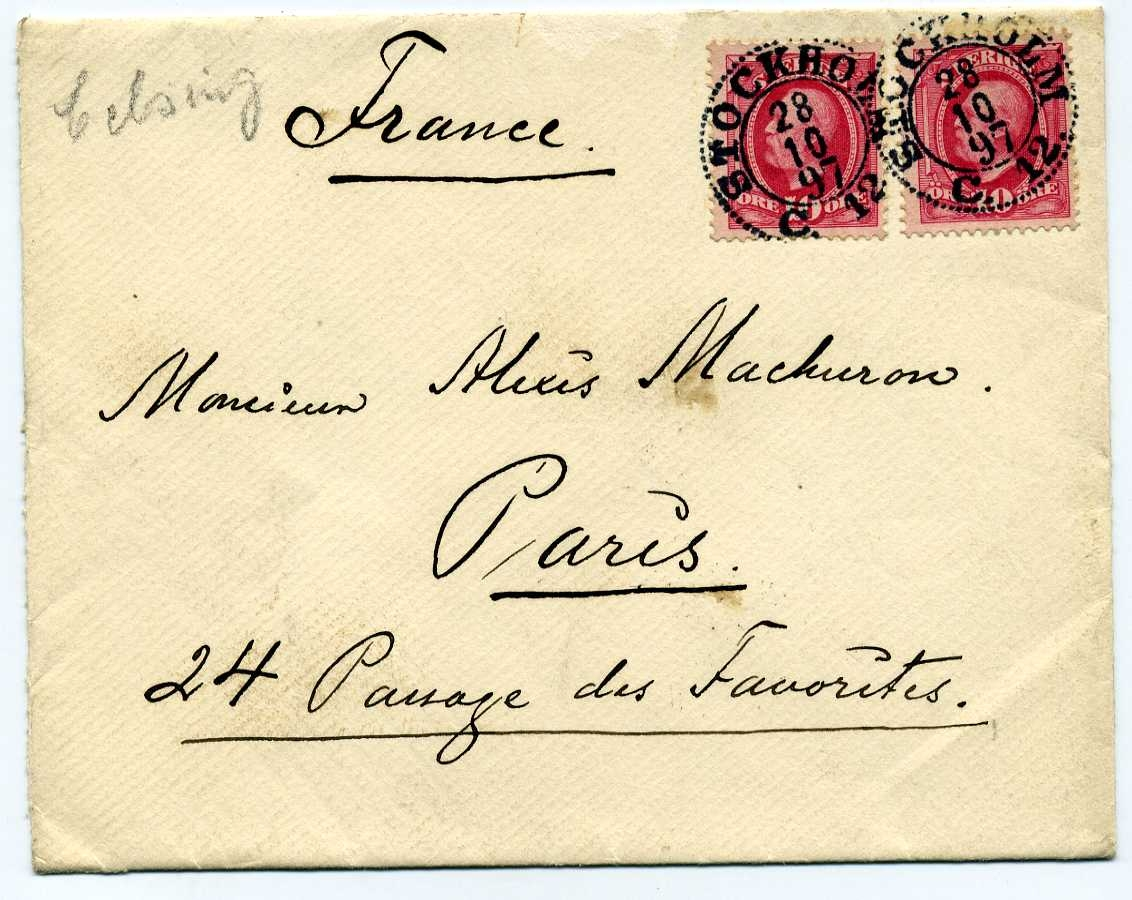 France.
STOCKHOLM
28
10
97
C. 12
SVERIGE
10
ÖRE ÖRE
STOCKHOLM
28
10
97
C. 12
SVERIGE
10
ÖRE ÖRE
Monsieur Alexis Machuron.
Paris.
24 Passage des Favorites.